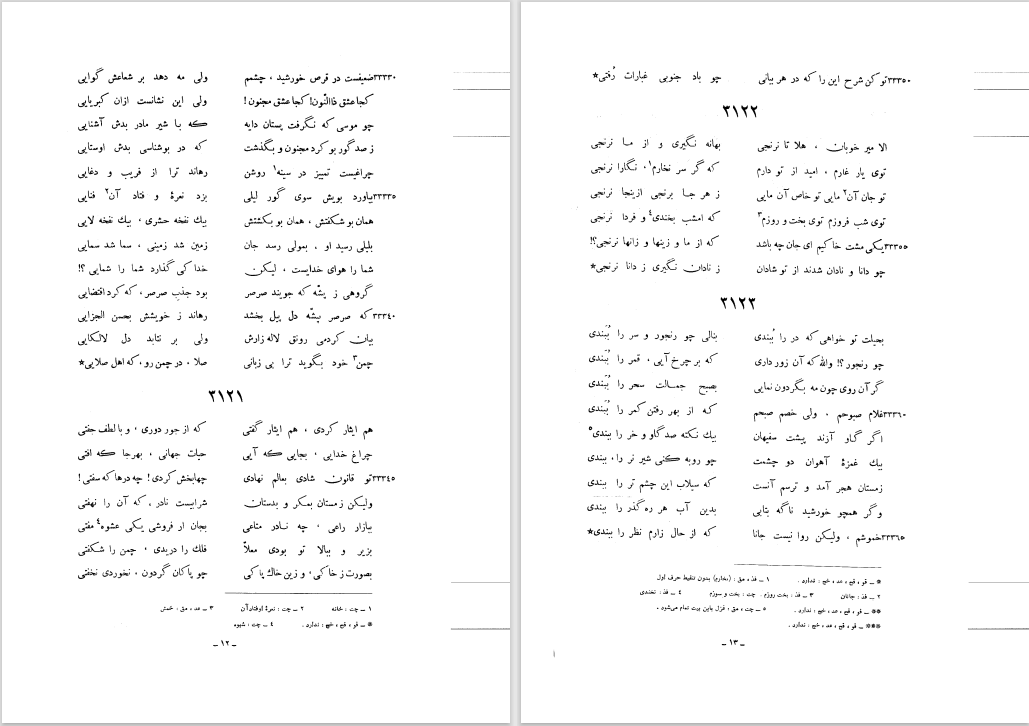 ۳۳۳۳۰ضعیفست در قرص خورشید ، چشمم ولی مه دهد بر شعاعش گوایی
کجا عشق ذاالنّون! کجا عشق مجنون! ولی این نشانست ازان کبریایی
چو موسی که نگرفت پستان دایه که با شیر مادر بدش آشنایی
ز صد گور بو کرد مجنون و بگذشت که در بوشناسی بدش اوستایی
چراغیست تمییز در سینه۱ روشن رهاند ترا از فریب و دغایی
۳۳۳۳۵بیاورد بویش سوی گور لیلی بزد نعرهٔ و فتاد آن۲ فنایی
همان بو شکفتش ، همان بو بکشتش بیك نفخه حشری ، بیك نفخه لایی
بلیلی رسید او ، بمولی رسد جان زمین شد زمینی ، سما شد سمایی
شما را هوای خدایست ، لیکن خدا کی گذارد شما را شمایی ؟!
گروهی ز پشّه که جویند صرصر بود جذب صرصر، که کرد اقتضایی
۳۳۳۴۰که صرصر بپشّه دل پیل بخشد رهاند ز خویشش بحسن الجزایی
بیان کردمی رونق لاله زارش ولی بر نتابد دل لالکایی
چمن۳ خود بگوید ترا بی زبانی صلا ، در چمن رو، که اهل صلایی*
۳۱۲۱
هم ایثار کردی ، هم ایثار گفتی که از جور دوری ، و با لطف جفتی
چراغ خدایی ، بجایی که آیی حیات جهانی ، بهرجا که افتی
۳۳۳۴۵تو قانون شادی بعالم نهادی چهابخش کردی! چه درها که سفتی!
ولیکن ز مستان بمکر و بدستان شرابیست نادر ، که آن را نهفتی
ببازار راعی ، چه نادر متاعی بجان ار فروشی یکی عشوه۴ مفتی
بزیر و ببالا تو بودی معلاّ فلك را دریدی ، چمن را شکفتی
بصورت ز خاکی ، و زین خاك پاکی چو پاکان گردون ، نخوردی نخفتی
۱ ــ چت : خانه ۲ ــ چت : نعرهٔ اوفتادآن ۳ ــ عد ، مق : خمش
* ــ قو ، قح ، خج : ندارد . ۴ ــ چت : شیوه
ــ ۱۲ ــ
۳۳۳۵۰تو کن شرح این را که در هر بیانی چو باد جنوبی غبارات رُفتی*
۳۱۲۲
الا میر خوبان ، هلا تا نرنجی بهانه نگیری و از ما نرنجی
توی یار غارم ، امید از تو دارم که گر سر نخارم۱، نگارا نرنجی
تو جان آن۲ مایی تو خاص آن مایی ز هر جا برنجی ازینجا نرنجی
توی شب فروزم توی بخت و روزم۳ که امشب بخندی۴ و فردا نرنجی
۳۳۳۵۵یکی مشت خاکیم ای جان چه باشد که از ما و زینها و زانها نرنجی؟!
چو دانا و نادان شدند از تو شادان ز نادان نگیری ز دانا نرنجی*
۳۱۲۳
بحیلت تو خواهی که در را بُبندی بنالی چو رنجور و سر را بُبندی
چو رنجور؟! والله که آن زور داری که بر چرخ آیی ، قمر را بُبندی
گر آن روی چون مه بگردون نمایی بصبح جمالت سحر را بُبندی
۳۳۳۶۰غلام صبوحم ، ولی خصم صبحم که از بهر رفتن کمر را ببندی
اگر گاو آرند پیشت سفیهان بیك نکته صد گاو و خر را ببندی۵
بیك غمزهٔ آهوان دو چشمت چو روبه کنی شیر نر را ، ببندی
زمستان هجر آمد و ترسم آنست که سیلاب این چشم تر را ببندی
وگر همچو خورشید ناگه بتابی بدین آب هر ره گذر را ببندی
۳۳۳۶۵خموشم ، ولیکن روا نیست جانا که از حال زارم نظر را ببندی*
* ــ قو ، قح ، عد ، خج : ندارد . ۱ ــ فذ ، مق : (نخارم) بدون تنقیط حرف اول
۲ ــ فذ : جانان ۳ ــ فذ : بخت روزم . چت : بخت و سوزم ۴ ــ فذ : نخندی
** ــ قو ، قح ، عد ، خج : ندارد . ۵ ــ چت ، مق : غزل باین بیت تمام می‌شود .
*** ــ قو ، قح ، عد ، خج : ندارد .
ــ ۱۳ ــ